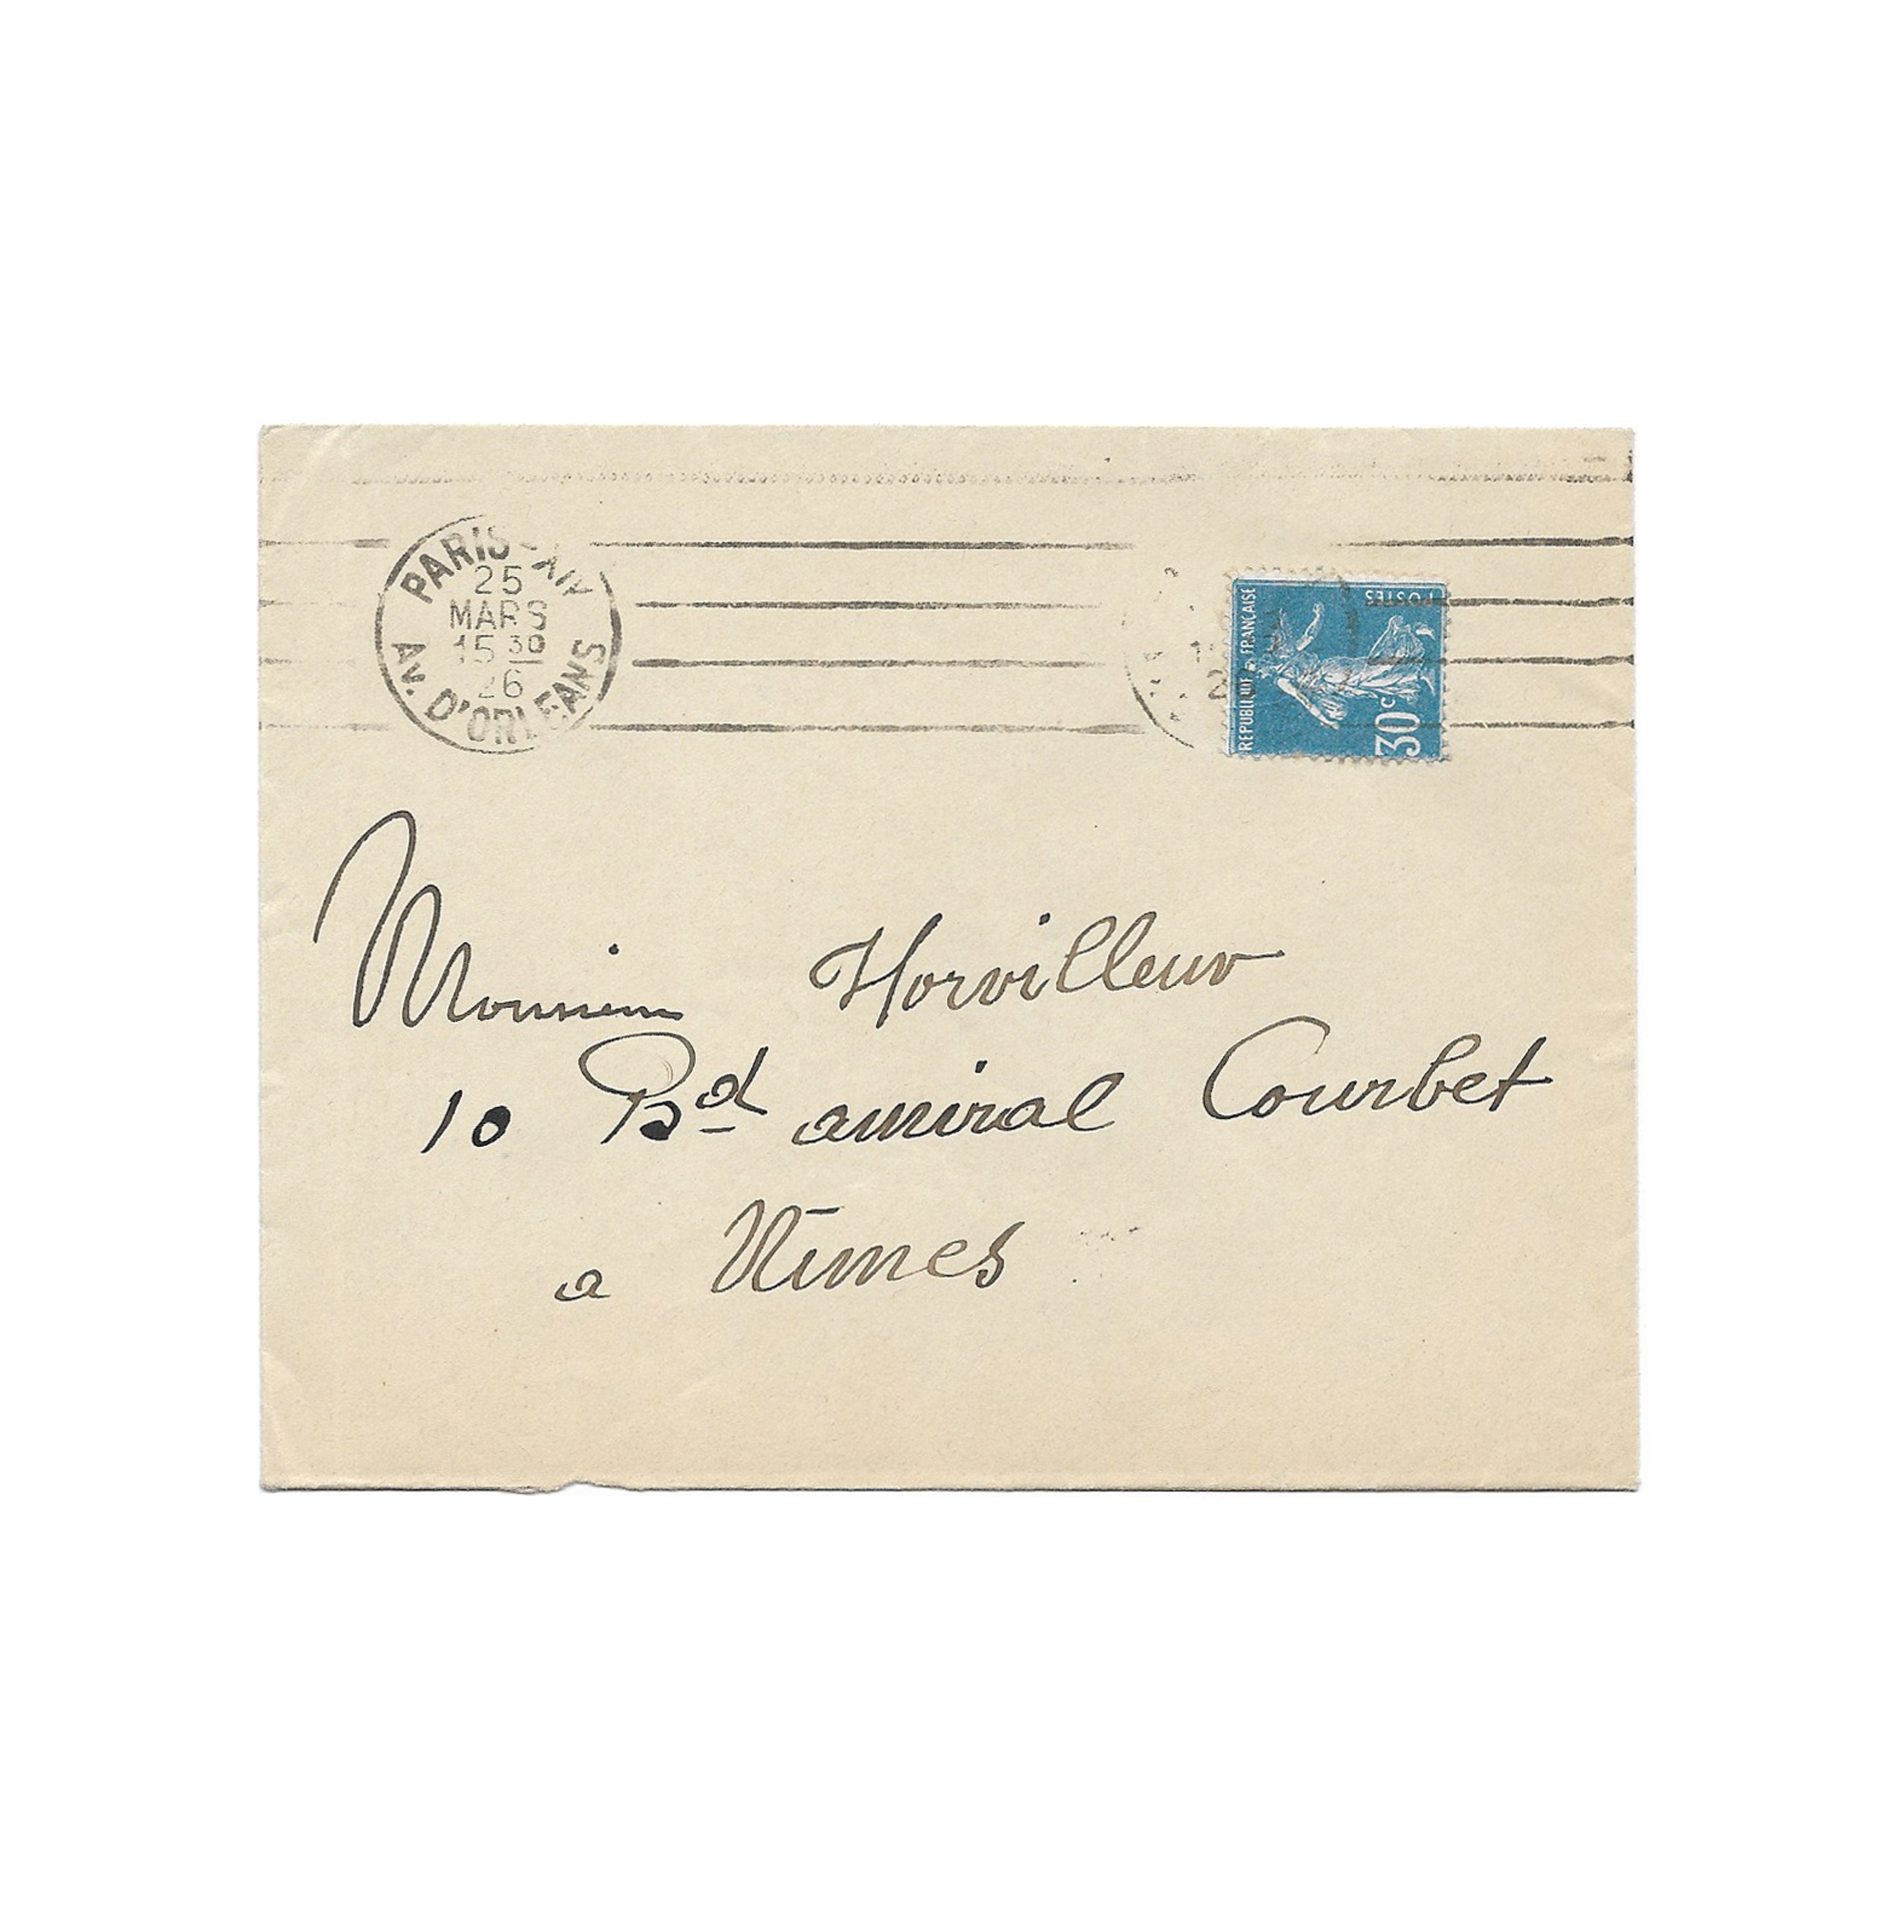 PARIS-XIV
25
MARS
15 30
26
AV. D'ORLEANS
REPUBLIQUE FRANÇAISE
POSTES
30c
Monsieur Horvilleur
10 Bd amiral Courbet
a Nîmes